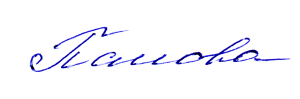 Панова